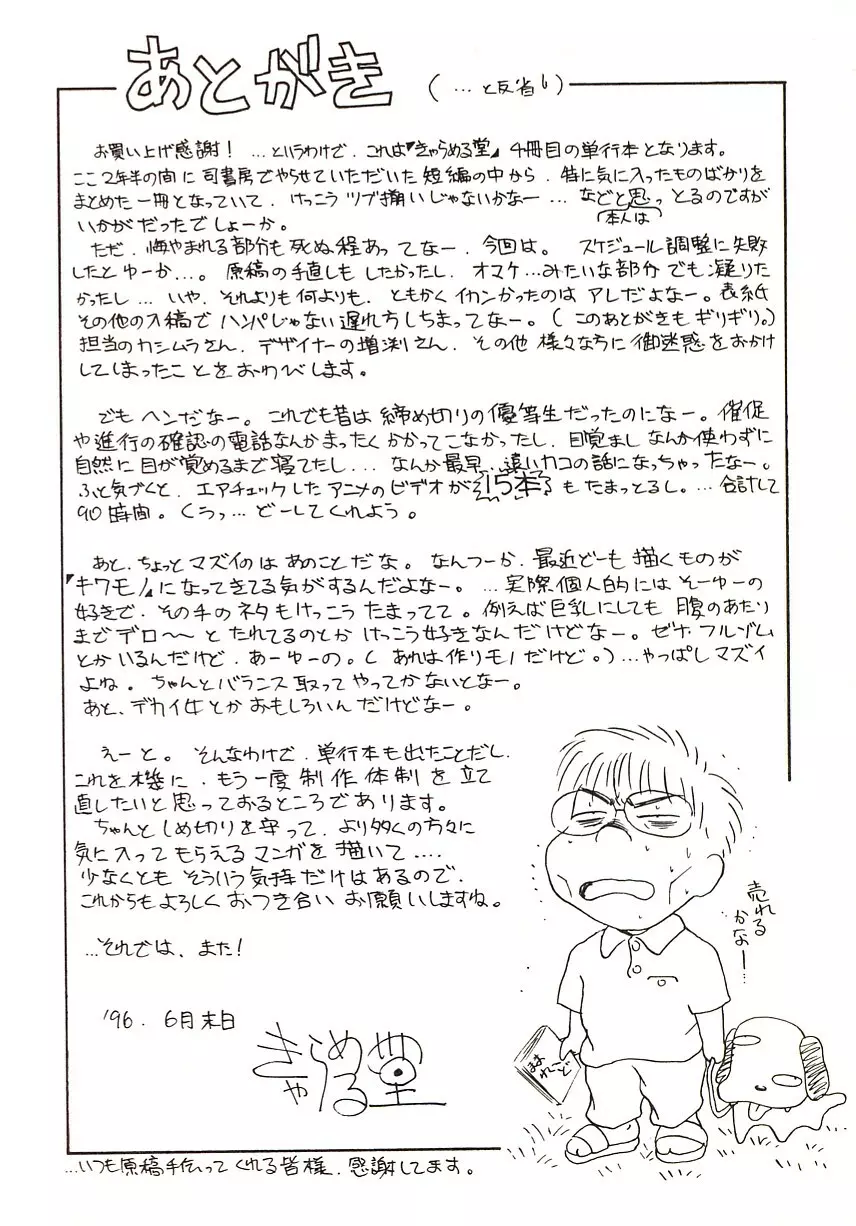 あとがき
(…と反省！)
お買い上げ感謝！…というわけで、これは『きゃらめる堂』4冊目の単行本となります。
ここ2年半の間に司書房でやらせていただいた短編の中から、特に気に入ったものばかりを
まとめた一冊となっていて、けっこうツブ揃いじゃないかなー…などと思っとるのですが
本人は
いかがだったでしょーか。
ただ、悔やまれる部分も死ぬ程あってなー、今回は。スケジュール調整に失敗
したとゆーか…。原稿の手直しもしたかったし、オマケ…みたいな部分でも凝りた
かったし…いや、それよりも何よりも、ともかくイカンかったのはアレだよなー。表紙
その他の入稿でハンパじゃない遅れ方しちまってなー。(このあとがきもギリギリ。)
担当のカシムラさん、デザイナーの増渕さん、その他様々な方に御迷惑をおかけ
してしまったことをおわびします。
でもヘンだなー。これでも昔は締め切りの優等生だったのになー。催促
や進行の確認の電話なんかまったくかかってこなかったし、目覚ましなんか使わずに
自然に目が覚めるまで寝てたし…なんか最早、遠いカコの話になっちゃったなー。
ふと気づくと、エアチェックしたアニメのビデオが15本もたまっとるし。…合計して
90時間。くうっ…どーしてくれよう。
あと、ちょっとマズイのはあのことだな。なんつーか、最近どーも描くものが
『キワモノ』になってきてる気がするんだよなー。…実際個人的にはそーゆーの
好きで、その手のネタもけっこうたまってて。例えば巨乳にしても腹のあたり
までデロ〜〜とたれてるのとかけっこう好きなんだけどなー。ゼナ・フルゾム
とかいるんだけど、あーゆーの。(あれは作りモノだけど。)…やっぱしマズイ
よね。ちゃんとバランス取ってやってかないとなー。
あと、デカイ女とかおもしろいんだけどなー。
えーと。そんなわけで、単行本も出たことだし、
これを機に、もう一度制作体制を立て
直したいと思っておるところであります。
ちゃんとしめ切りを守って、より多くの方々に
気に入ってもらえるマンガを描いて….
少なくともそういう気持だけはあるので、
これからもよろしくおつき合いお願いしますね。
…それでは、また！
'96. 6月末日
きゃらめる堂
売れる
かなー…
はれ
れこど
…いつも原稿手伝ってくれる皆様、感謝してます。